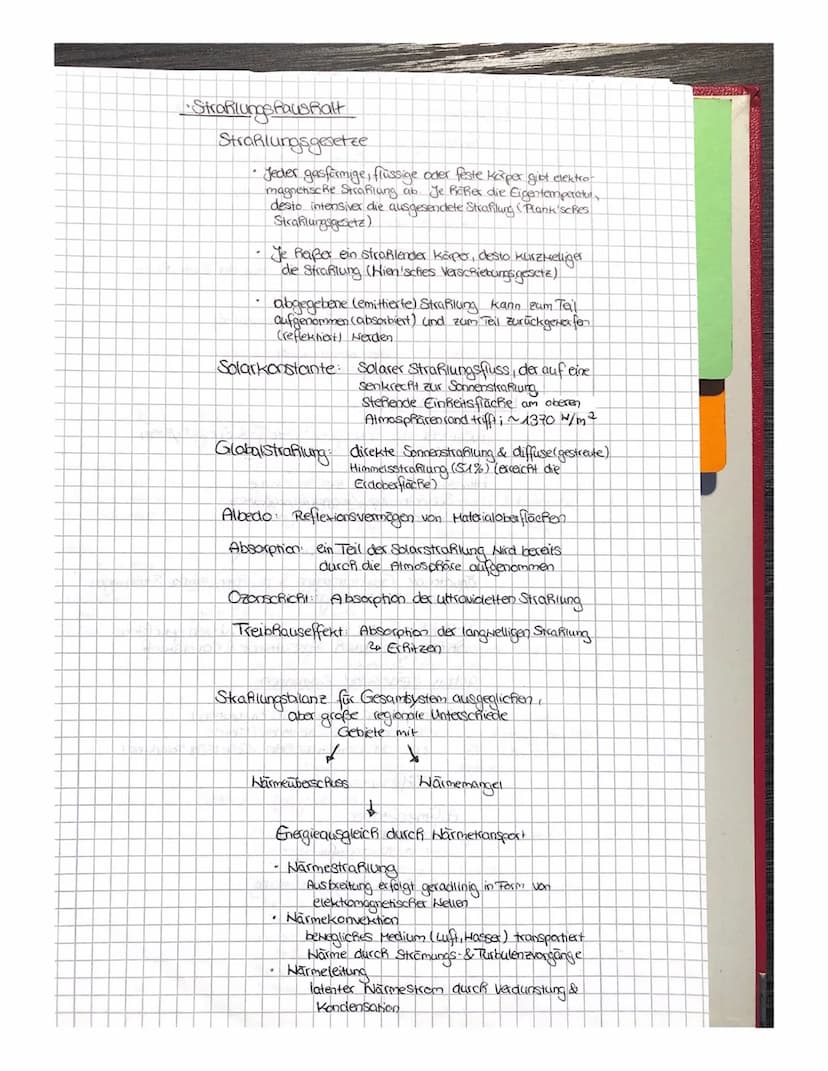 · Strahlungshaushalt
Strahlungsgesetze
· Jeder gasförmige, flüssige oder feste Körper gibt elektro-
magnetische Strahlung ab. Je höher die Eigentemperatur,
desto intensiver die ausgesendete Strahlung (Plank'sches
Strahlungsgesetz)
· Je heißer ein strahlender Körper, desto kurzwelliger
die Strahlung (Wien'sches Verschiebungsgesetz)
· abgegebene (emittierte) Strahlung kann zum Teil
aufgenommen (absorbiert) und zum Teil zurückgeworfen
(reflektiert) werden
Solarkonstante: Solarer Strahlungsfluss, der auf eine
senkrecht zur Sonnenstrahlung
stehende Einheitsfläche am oberen
Atmosphärenrand trifft; ~1370 W/m²
Globalstrahlung: direkte Sonnenstrahlung & diffuse (gestreute)
Himmelsstrahlung (51%) (erreicht die
Erdoberfläche)
Albedo: Reflexionsvermögen von Materialoberflächen
Absorption: ein Teil der Solarstrahlung wird bereits
durch die Atmosphäre aufgenommen
Ozonschicht: Absorption der ultravioletten Strahlung
Treibhauseffekt: Absorption der langwelligen Strahlung
↳ Erhitzen
Strahlungsbilanz für Gesamtsystem ausgeglichen,
aber große regionale Unterschiede
Gebiete mit
↙ ↘
Wärmeüberschuss Wärmemangel
↓
Energieausgleich durch Wärmetransport
- Wärmestrahlung
Ausbreitung erfolgt geradlinig in Form von
elektromagnetischer Wellen
· Wärmekonvektion
bewegliches Medium (Luft, Wasser) transportiert
Wärme durch Strömungs- & Turbulenzvorgänge
· Wärmeleitung
latenter Wärmestrom durch Verdunstung &
Kondensation